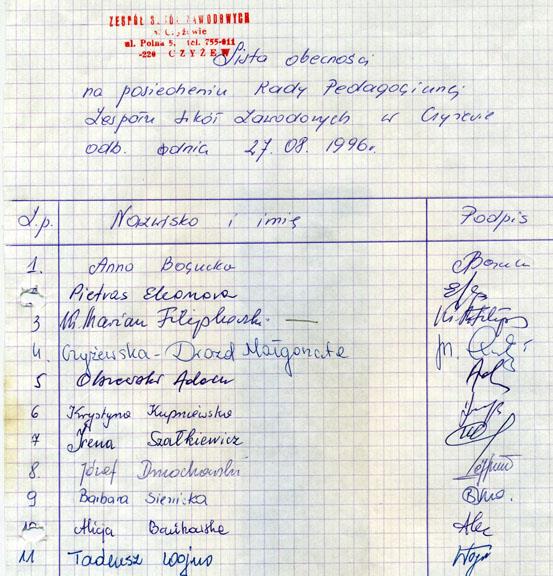 ZESPÓŁ SZKÓŁ ZAWODOWYCH
w Czyżewie
ul. Polna 5, tel. 755-011
-220 CZYŻEW
Lista obecności
na posiedzeniu Rady Pedagogicznej
Zespołu Szkół Zawodowych w Czyżewie
odb. dnia 27.08.1996r.
L.p. Nazwisko i imię Podpis
1. Anna Bogucka
2 Pietras Eleonora
3 Ks. Marian Filipkowski
4. Czyżewska-Drozd Małgorzata
5 Olszewski Adam
6 Krystyna Kupniewska
7 Irena Szałkiewicz
8. Józef Dmochowski
9 Barbara Sienicka
10 Alicja Bańkowska
11 Tadeusz Wojno